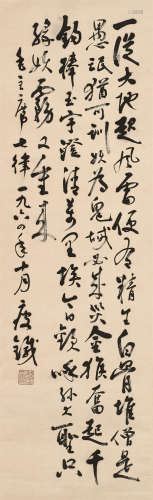 一從大地起風雷便有精生白骨堆僧是
愚氓猶可訓妖為鬼蜮必成災金猴奮起千
鈞棒玉宇澄清萬里埃今日歡呼孫大聖只
緣妖霧又重來
毛主席七律一九六四年十月瘦鐵